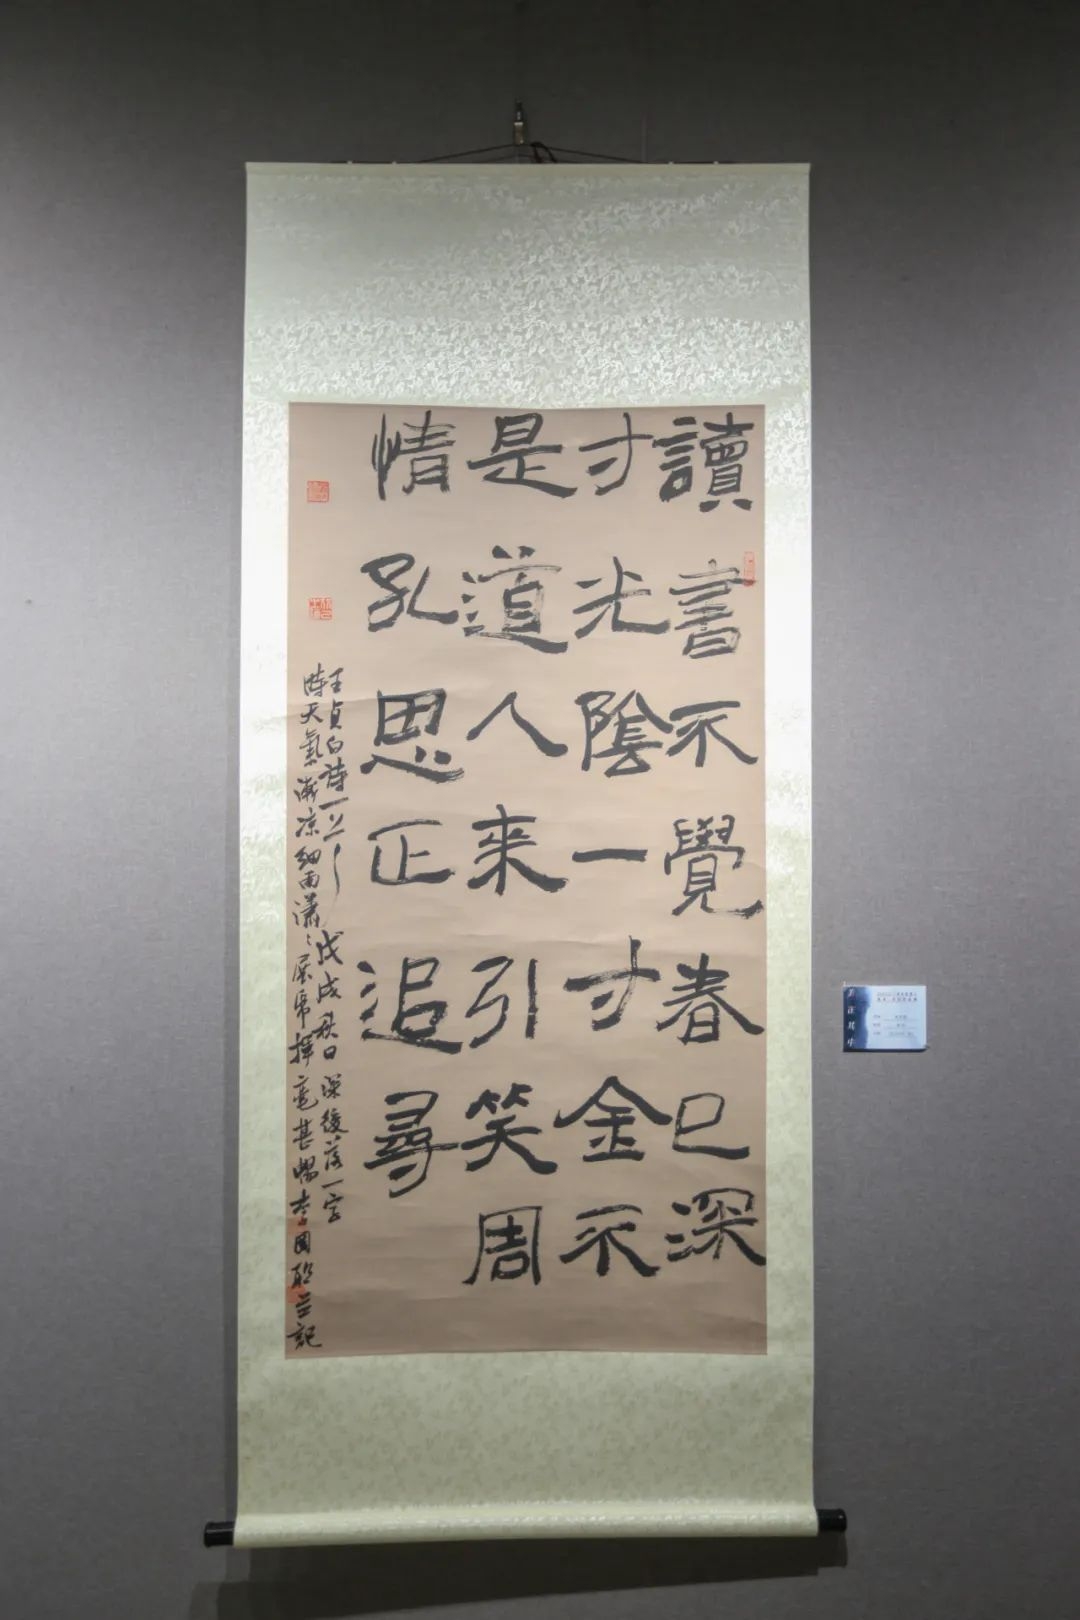 讀書不覺春已深
寸光陰一寸金不
是道人来引笑周
情孔思正追尋
王貞白詩一首 戊戌秋日 深後落一字
時天氣漸凉細雨瀟〻展帋揮毫甚暢李国并記